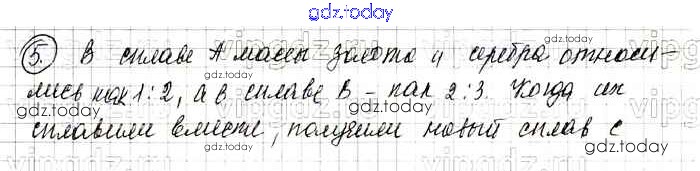 gdz.today
5. В сплаве А массы золота и серебра относи-
gdz.today gdz.today
лись как 1:2, а в сплаве В - как 2:3. Когда их
gdz.today gdz.today
сплавили вместе, получили новый сплав с
vipgdz.ru